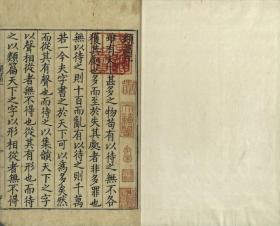 類篇序
雖有甚多之物苟有以待之無不各
獲其處也多而至於失其處者非多罪也
無以待之則十百而亂有以待之則千萬
若一今夫字書之於天下可以為多矣然
而從其有聲也而待之以集韻天下之字
以聲相從者無不得也從其有形也而待
之以類篇天下之字以形相從者無不得